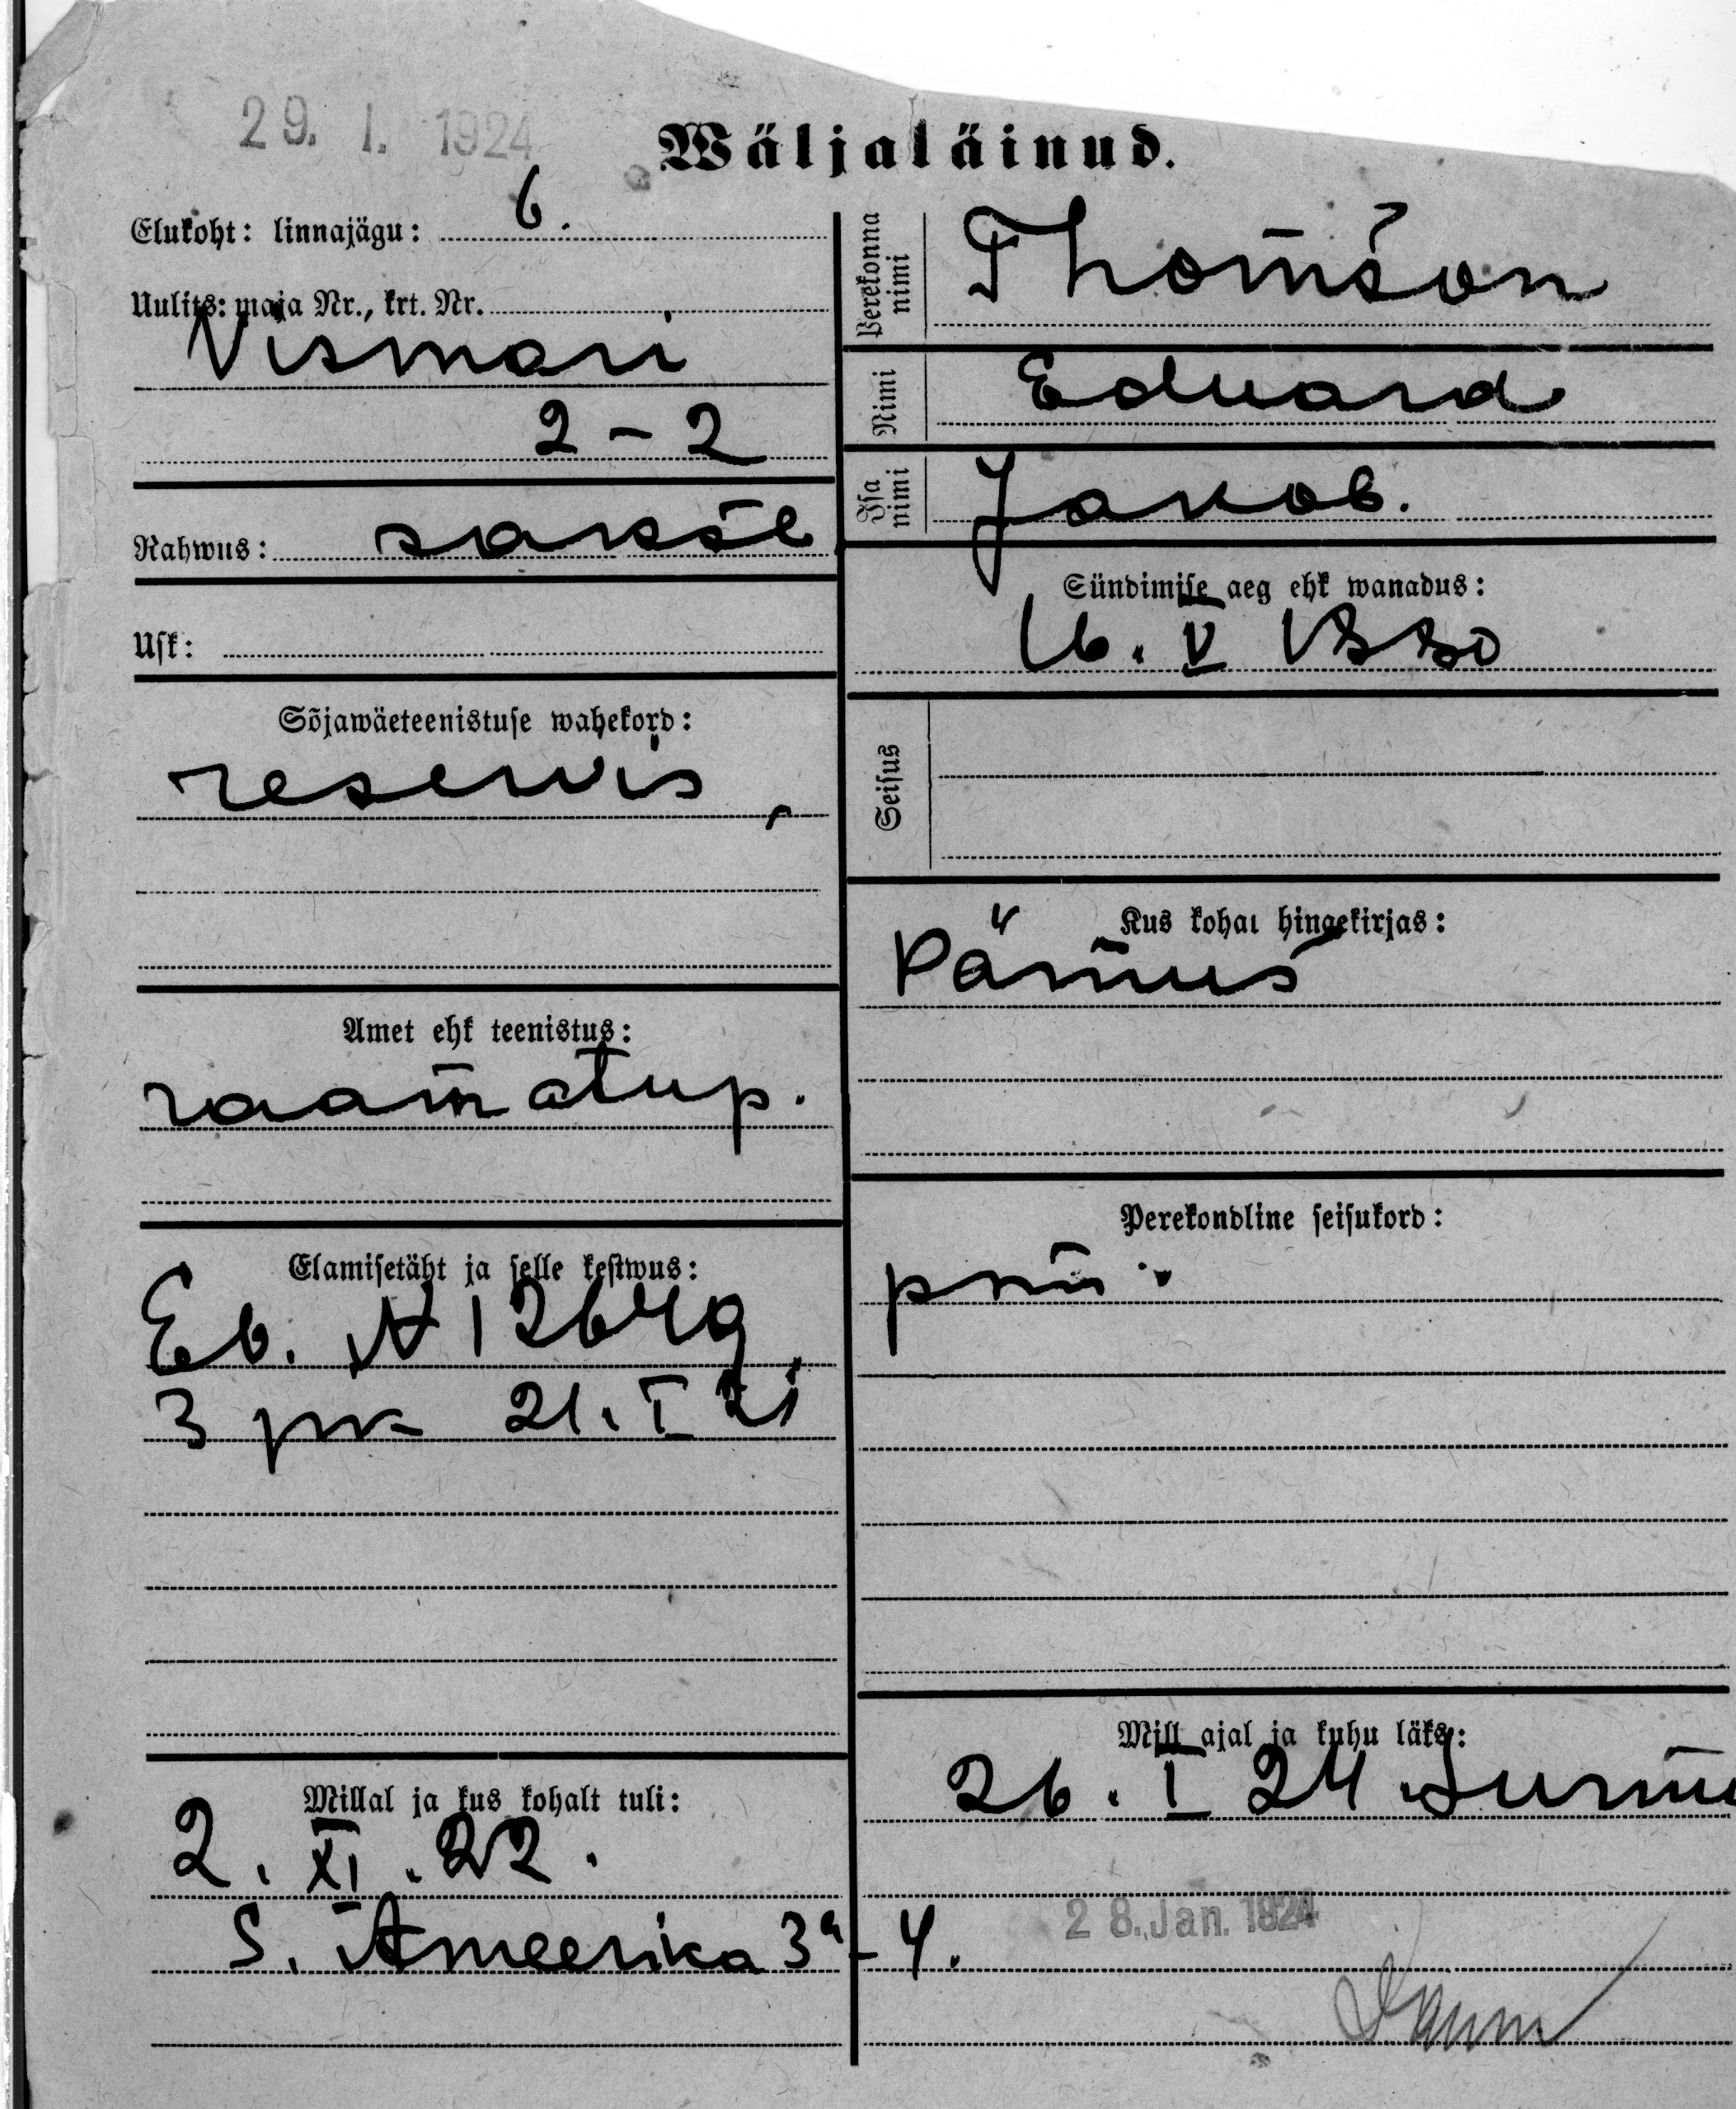 29. I. 1924
Wäljaläinud.
Elukoht: linnajägu: 6.
Uulits: maja Nr., krt. Nr.
Vismari
2-2
Rahwus: saksl
Usk:
Sõjawäeteenistuse wahekord:
reservis,
Amet ehk teenistus:
raamatup.
Elamisetäht ja selle kestwus:
Eb. N 12649
3 prk 21. I 21
Millal ja kus kohalt tuli:
2. XI. 22.
S. Ameerika 3a-4.
Perekonna nimi
Thomson
Nimi
Eduard
Isa nimi
Jakob.
Sündimise aeg ehk wanadus:
16. V 1880
Seisus
Kus kohal hingekirjas:
Pärnus
Perekondline seisukord:
Mill ajal ja kuhu läks:
26. I 24 Surnu
28. Jan. 1924